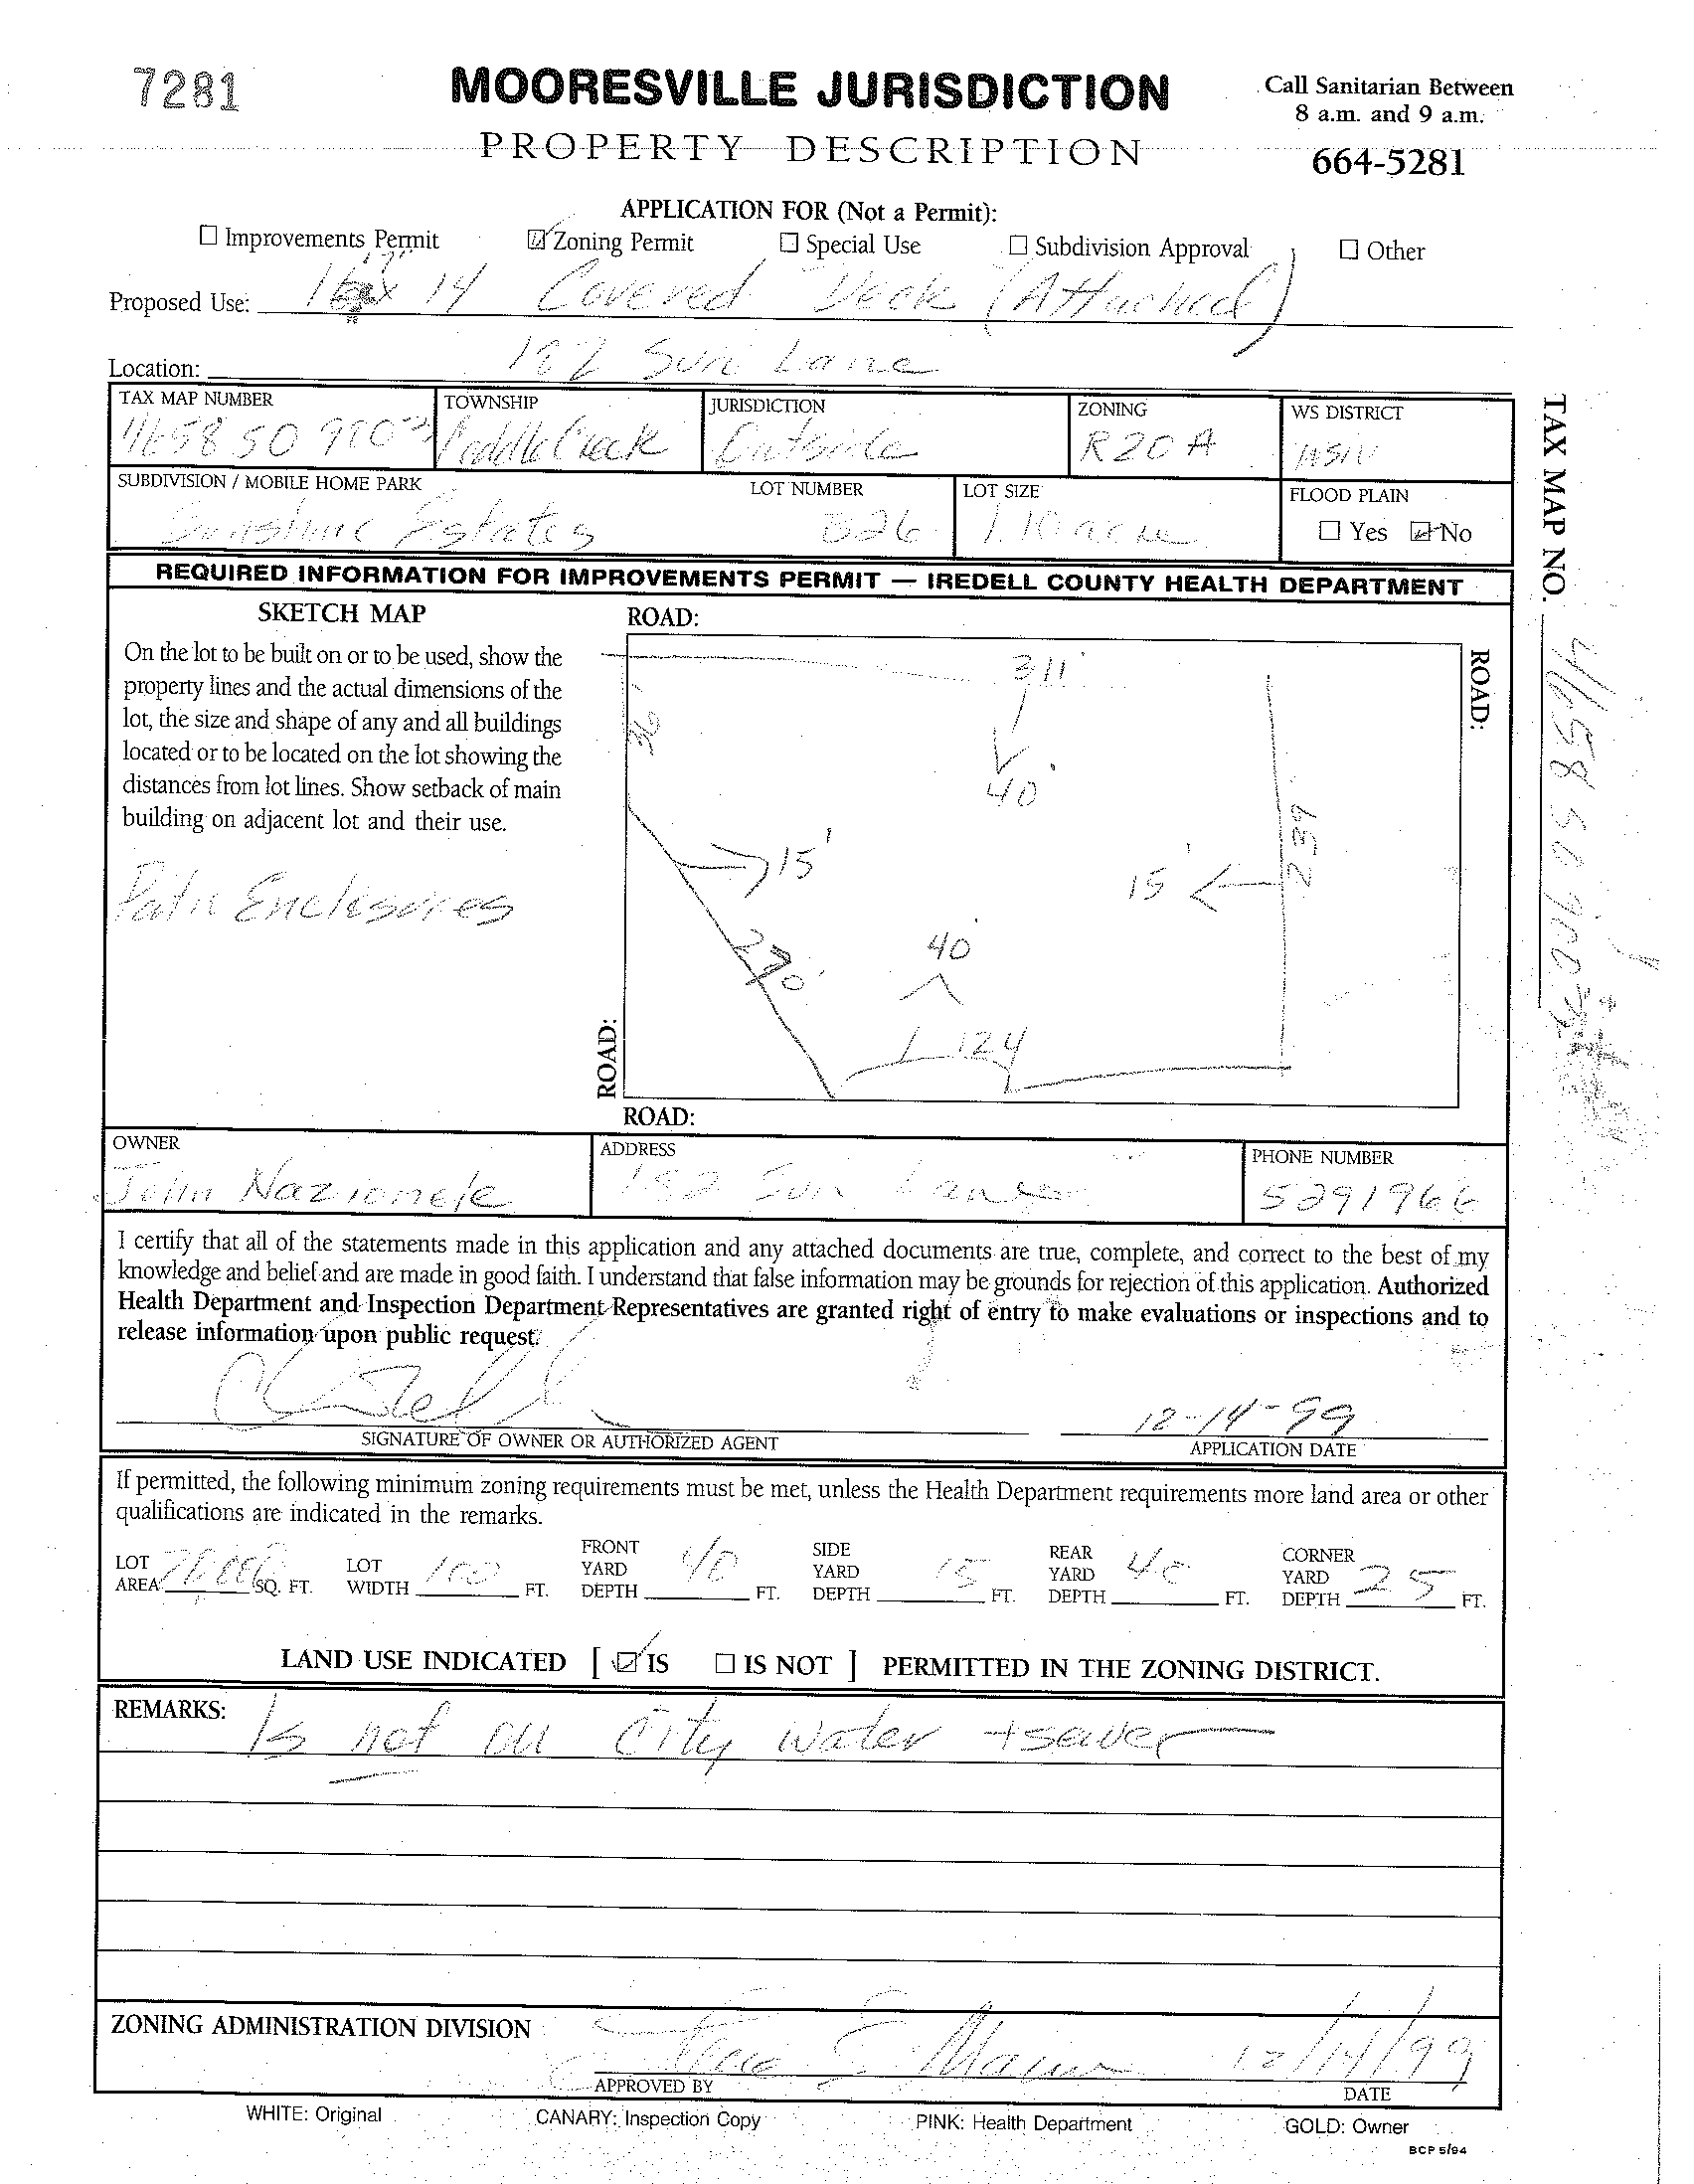 7281
MOORESVILLE JURISDICTION
Call Sanitarian Between
8 a.m. and 9 a.m.
PROPERTY DESCRIPTION
664-5281
APPLICATION FOR (Not a Permit):
☐ Improvements Permit ☑ Zoning Permit ☐ Special Use ☐ Subdivision Approval ☐ Other
Proposed Use: x 14 Covered Deck (Attached)
Location: 182 Sun Lane
TAX MAP NUMBER TOWNSHIP JURISDICTION ZONING WS DISTRICT
Coddle Creek Outside R20A WSIV
SUBDIVISION / MOBILE HOME PARK LOT NUMBER LOT SIZE FLOOD PLAIN
Sunshine Estates B26 acre ☐ Yes ☑ No
TAX MAP NO.
REQUIRED INFORMATION FOR IMPROVEMENTS PERMIT — IREDELL COUNTY HEALTH DEPARTMENT
SKETCH MAP
On the lot to be built on or to be used, show the
property lines and the actual dimensions of the
lot, the size and shape of any and all buildings
located or to be located on the lot showing the
distances from lot lines. Show setback of main
building on adjacent lot and their use.
Patio Enclosures
ROAD:
ROAD:
311'
36
40'
15'
15'
259
270'
40'
124
ROAD:
ROAD:
OWNER ADDRESS PHONE NUMBER
John 182 Sun Lane 5291966
I certify that all of the statements made in this application and any attached documents are true, complete, and correct to the best of my
knowledge and belief and are made in good faith. I understand that false information may be grounds for rejection of this application. Authorized
Health Department and Inspection Department Representatives are granted right of entry to make evaluations or inspections and to
release information upon public request.
12-14-99
SIGNATURE OF OWNER OR AUTHORIZED AGENT APPLICATION DATE
If permitted, the following minimum zoning requirements must be met, unless the Health Department requirements more land area or other
qualifications are indicated in the remarks.
LOT AREA SQ. FT. LOT WIDTH 100 FT. FRONT YARD DEPTH 40 FT. SIDE YARD DEPTH 15 FT. REAR YARD DEPTH 40 FT. CORNER YARD DEPTH 25 FT.
LAND USE INDICATED [ ☑ IS ☐ IS NOT ] PERMITTED IN THE ZONING DISTRICT.
REMARKS: Is not on City water + sewer
ZONING ADMINISTRATION DIVISION
12/14/99
APPROVED BY DATE
WHITE: Original CANARY: Inspection Copy PINK: Health Department GOLD: Owner
BCP 5/94